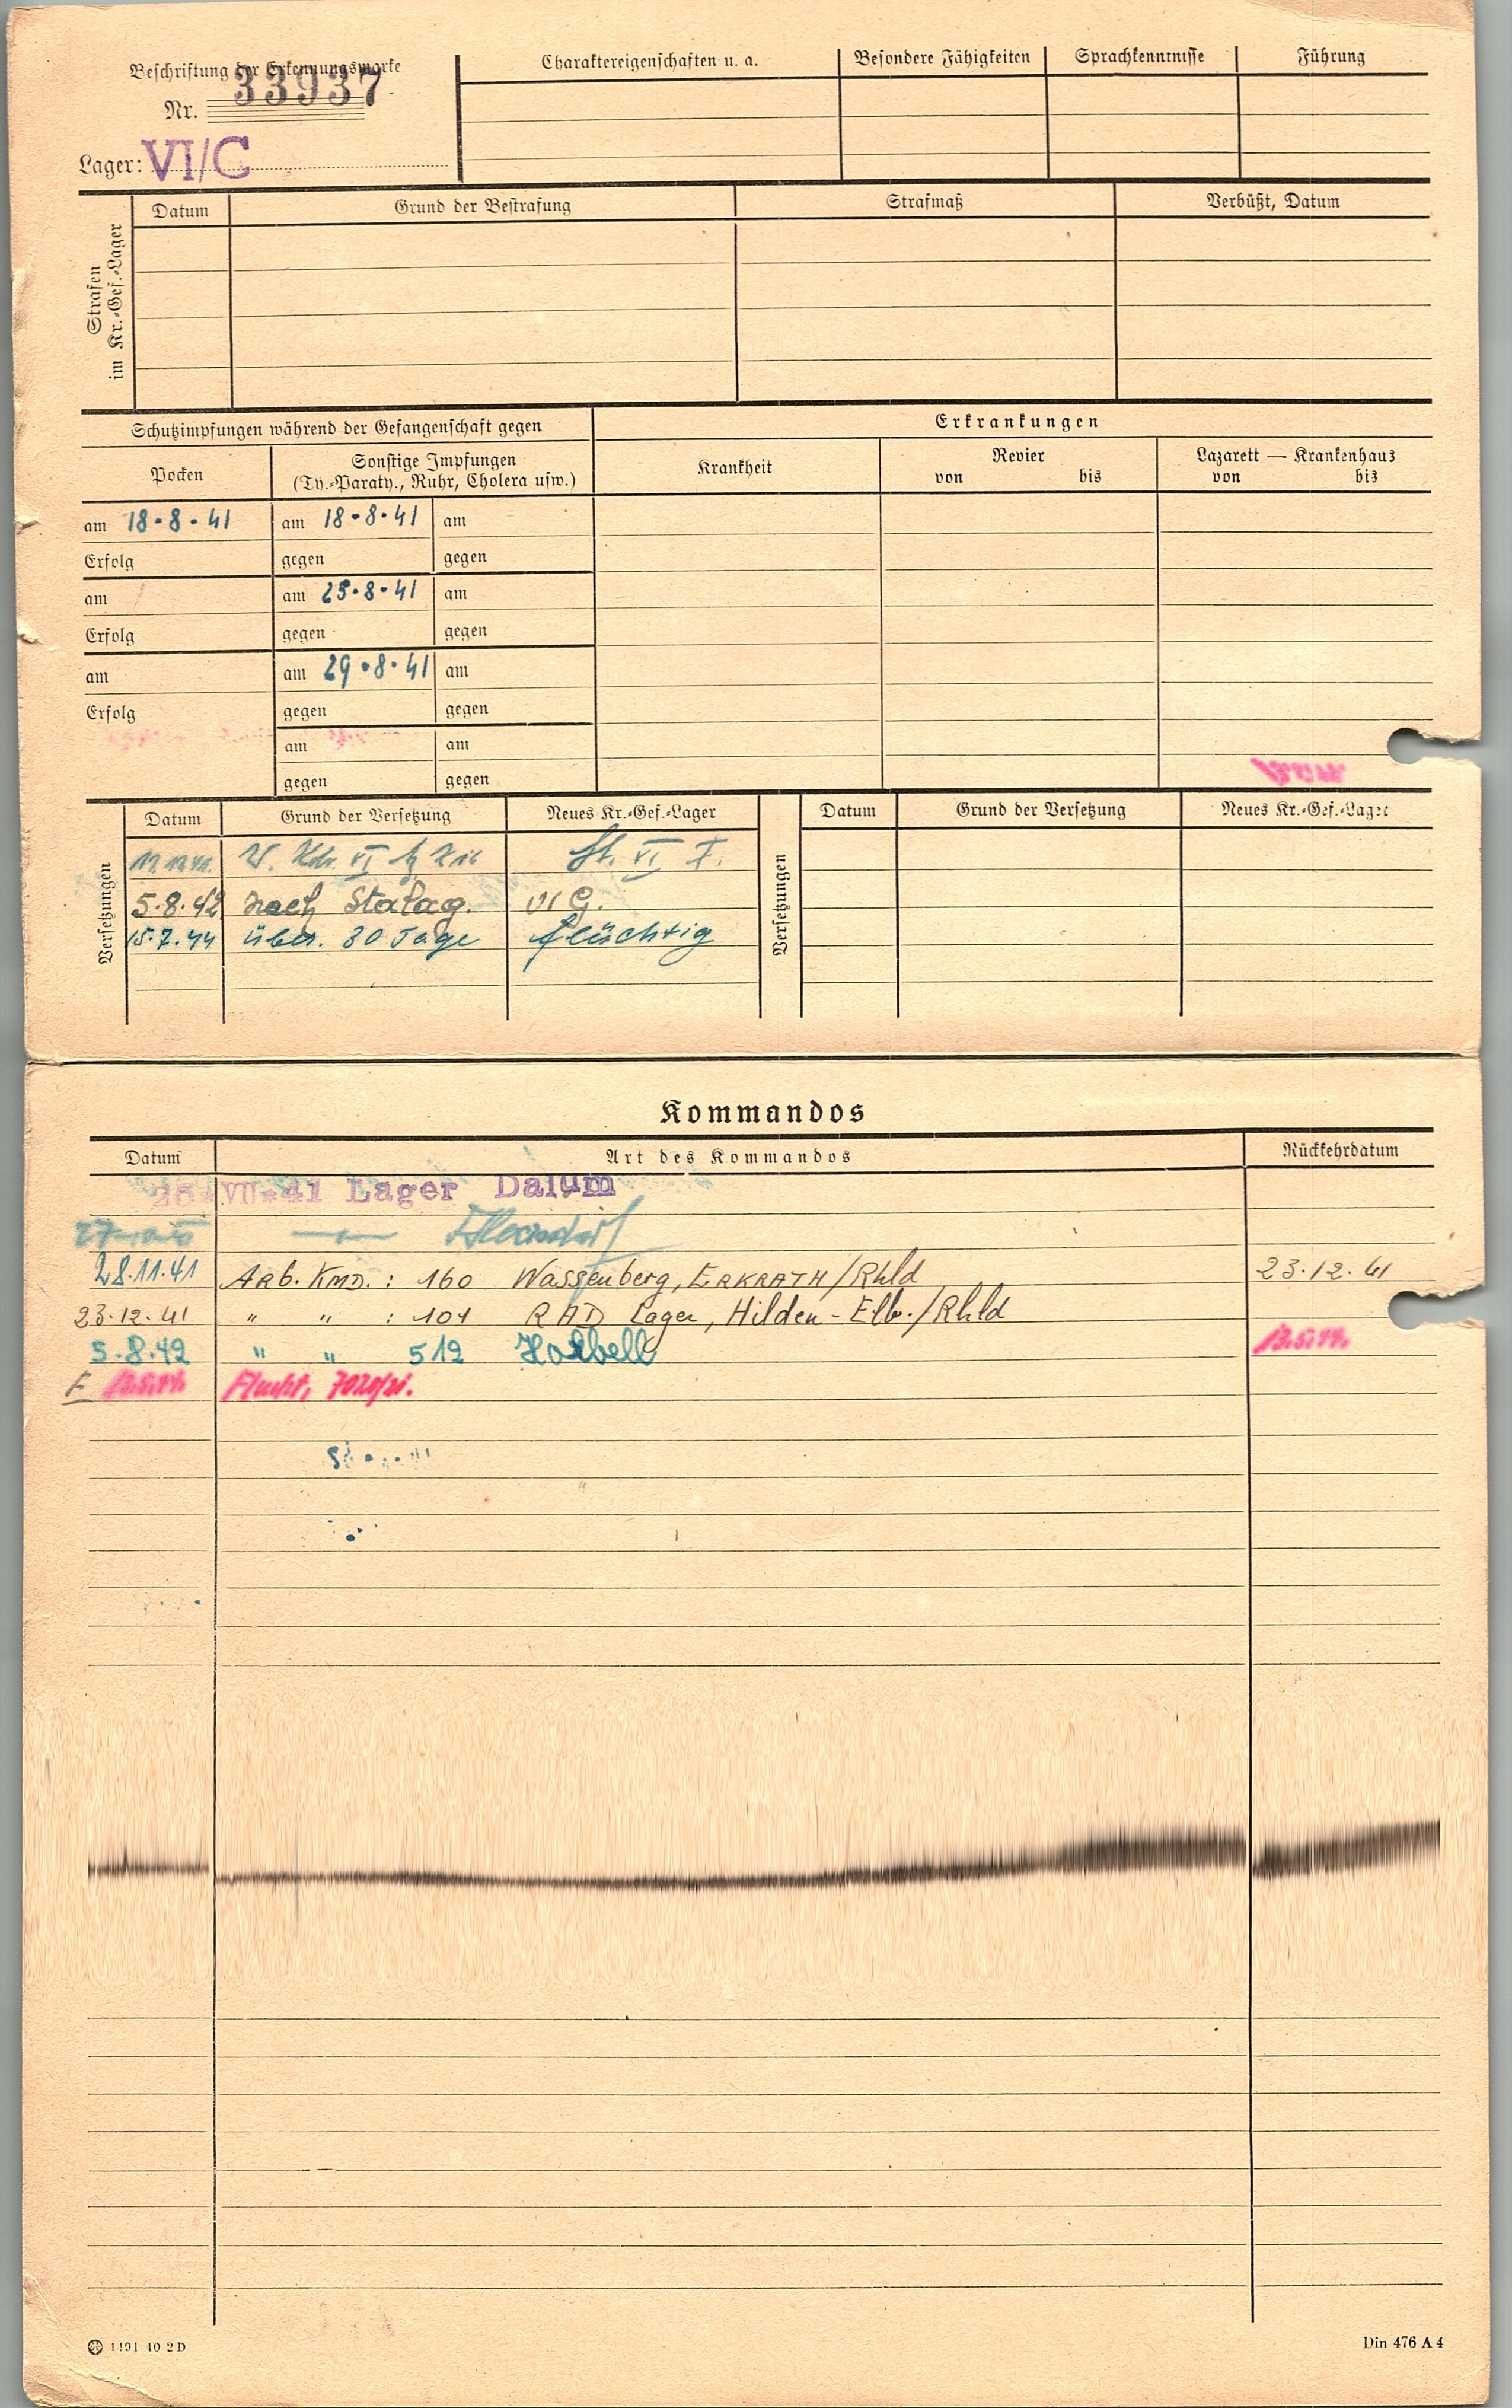 Beschriftung der Erkennungsmarke
Nr. 33937
Lager: VI/C
Charaktereigenschaften u. a.
Besondere Fähigkeiten
Sprachkenntnisse
Führung
Strafen im Kr.-Gef.-Lager
Datum
Grund der Bestrafung
Strafmaß
Verbüßt, Datum
Schutzimpfungen während der Gefangenschaft gegen
Erkrankungen
Pocken
Sonstige Impfungen
(Ty.-Paraty., Ruhr, Cholera usw.)
Krankheit
Revier
von bis
Lazarett — Krankenhaus
von bis
am 18·8·41 am 18·8·41 am
Erfolg gegen gegen
am am 25·8·41 am
Erfolg gegen gegen
am am 29·8·41 am
Erfolg gegen gegen
am am
gegen gegen
Versetzungen
Datum Grund der Versetzung Neues Kr.-Gef.-Lager
VI St. VI F.
5.8.42 nach Stalag. VI G.
15.7.44 über. 30 Tage flüchtig
Versetzungen
Datum Grund der Versetzung Neues Kr.-Gef.-Lager
Kommandos
Datum Art des Kommandos Rückkehrdatum
VII·41 Lager Dalum
28.11.41 Arb. Kmd. : 160 Wassenberg, ERKRATH/Rhld 23.12.41
23.12.41 " " : 101 RAD Lager, Hilden-Elb./Rhld
5.8.42 " " 512 13.5.44.
F 13.5.44. Flucht,
1491 40 2 D
Din 476 A 4